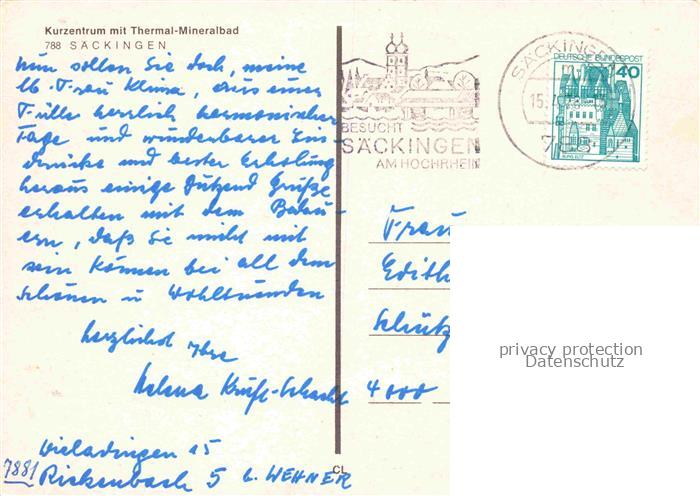 Kurzentrum mit Thermal-Mineralbad
788 SÄCKINGEN
Nun sollen Sie doch, meine
lb. Frau Klima, aus einer
Fülle herrlich harmonischer
Tage und wunderbarer Ein-
drücke und bester Erholung
heraus einige Dutzend Grüße
erhalten mit dem Bedau-
ern, daß Sie nicht mit
sein können bei all dem
Schönen u Wohltuenden
herzlichst Ihre
Helena
Wieladingen 15
7881 Rickenbach 5 b. WEHNER
BESUCHT
SÄCKINGEN
AM HOCHRHEIN
SÄCKINGEN
15.
788
DEUTSCHE BUNDESPOST
40
BURG ELTZ
Frau
Edith
Schütz
4000
CL
privacy protection
Datenschutz